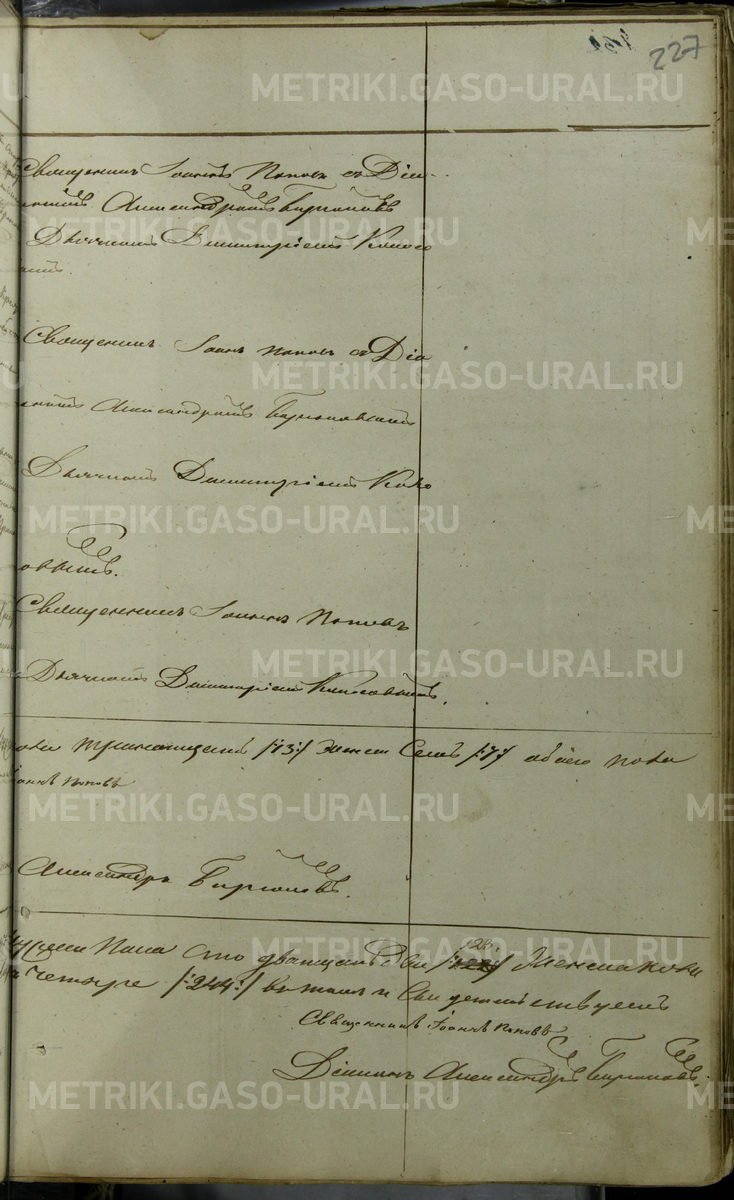 227
Священникъ Іоаннъ Поповъ съ Діа-
кономъ Александромъ Бирюковымъ
Дьячкомъ Димитріемъ Колосо
вымъ.
Священникъ Іоаннъ Поповъ съ Діа
кономъ Александромъ
Дьячкомъ Димитріемъ Коло
совымъ.
Священникъ Іоаннъ Поповъ
Дьячкомъ Димитріемъ Колосовымъ.
пола тринадцать /:13:/ женска Семь /:7:/ обоего пола
Іоаннъ Поповъ
Александръ Бирюковъ.
мужеска Пола сто двадцать два /:122:/ Женска пола
четыре /:244:/ въ томъ и Свидетельствуемъ
Священникъ Іоаннъ Поповъ
Діаконъ Александръ Бирюковъ.
METRIKI.GASO-URAL.RU